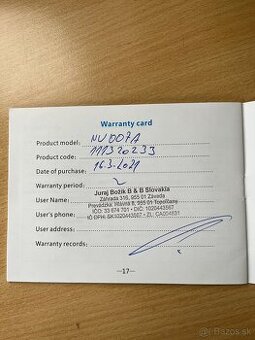 Warranty card
Product model: NV007A
Product code: 11320233
Date of purchase: 16.3.2021
Warranty period: 2
Juraj Božik B & B Slovakia
User Name: Záhrada 316, 955 01 Závada
Prevádzka: Hlavná 8, 955 01 Topoľčany
User's phone: IČO: 33 674 701 • DIČ: 1020443567
IČ DPH: SK1020443567
User address:
Warranty records:
—17—
bazos.sk